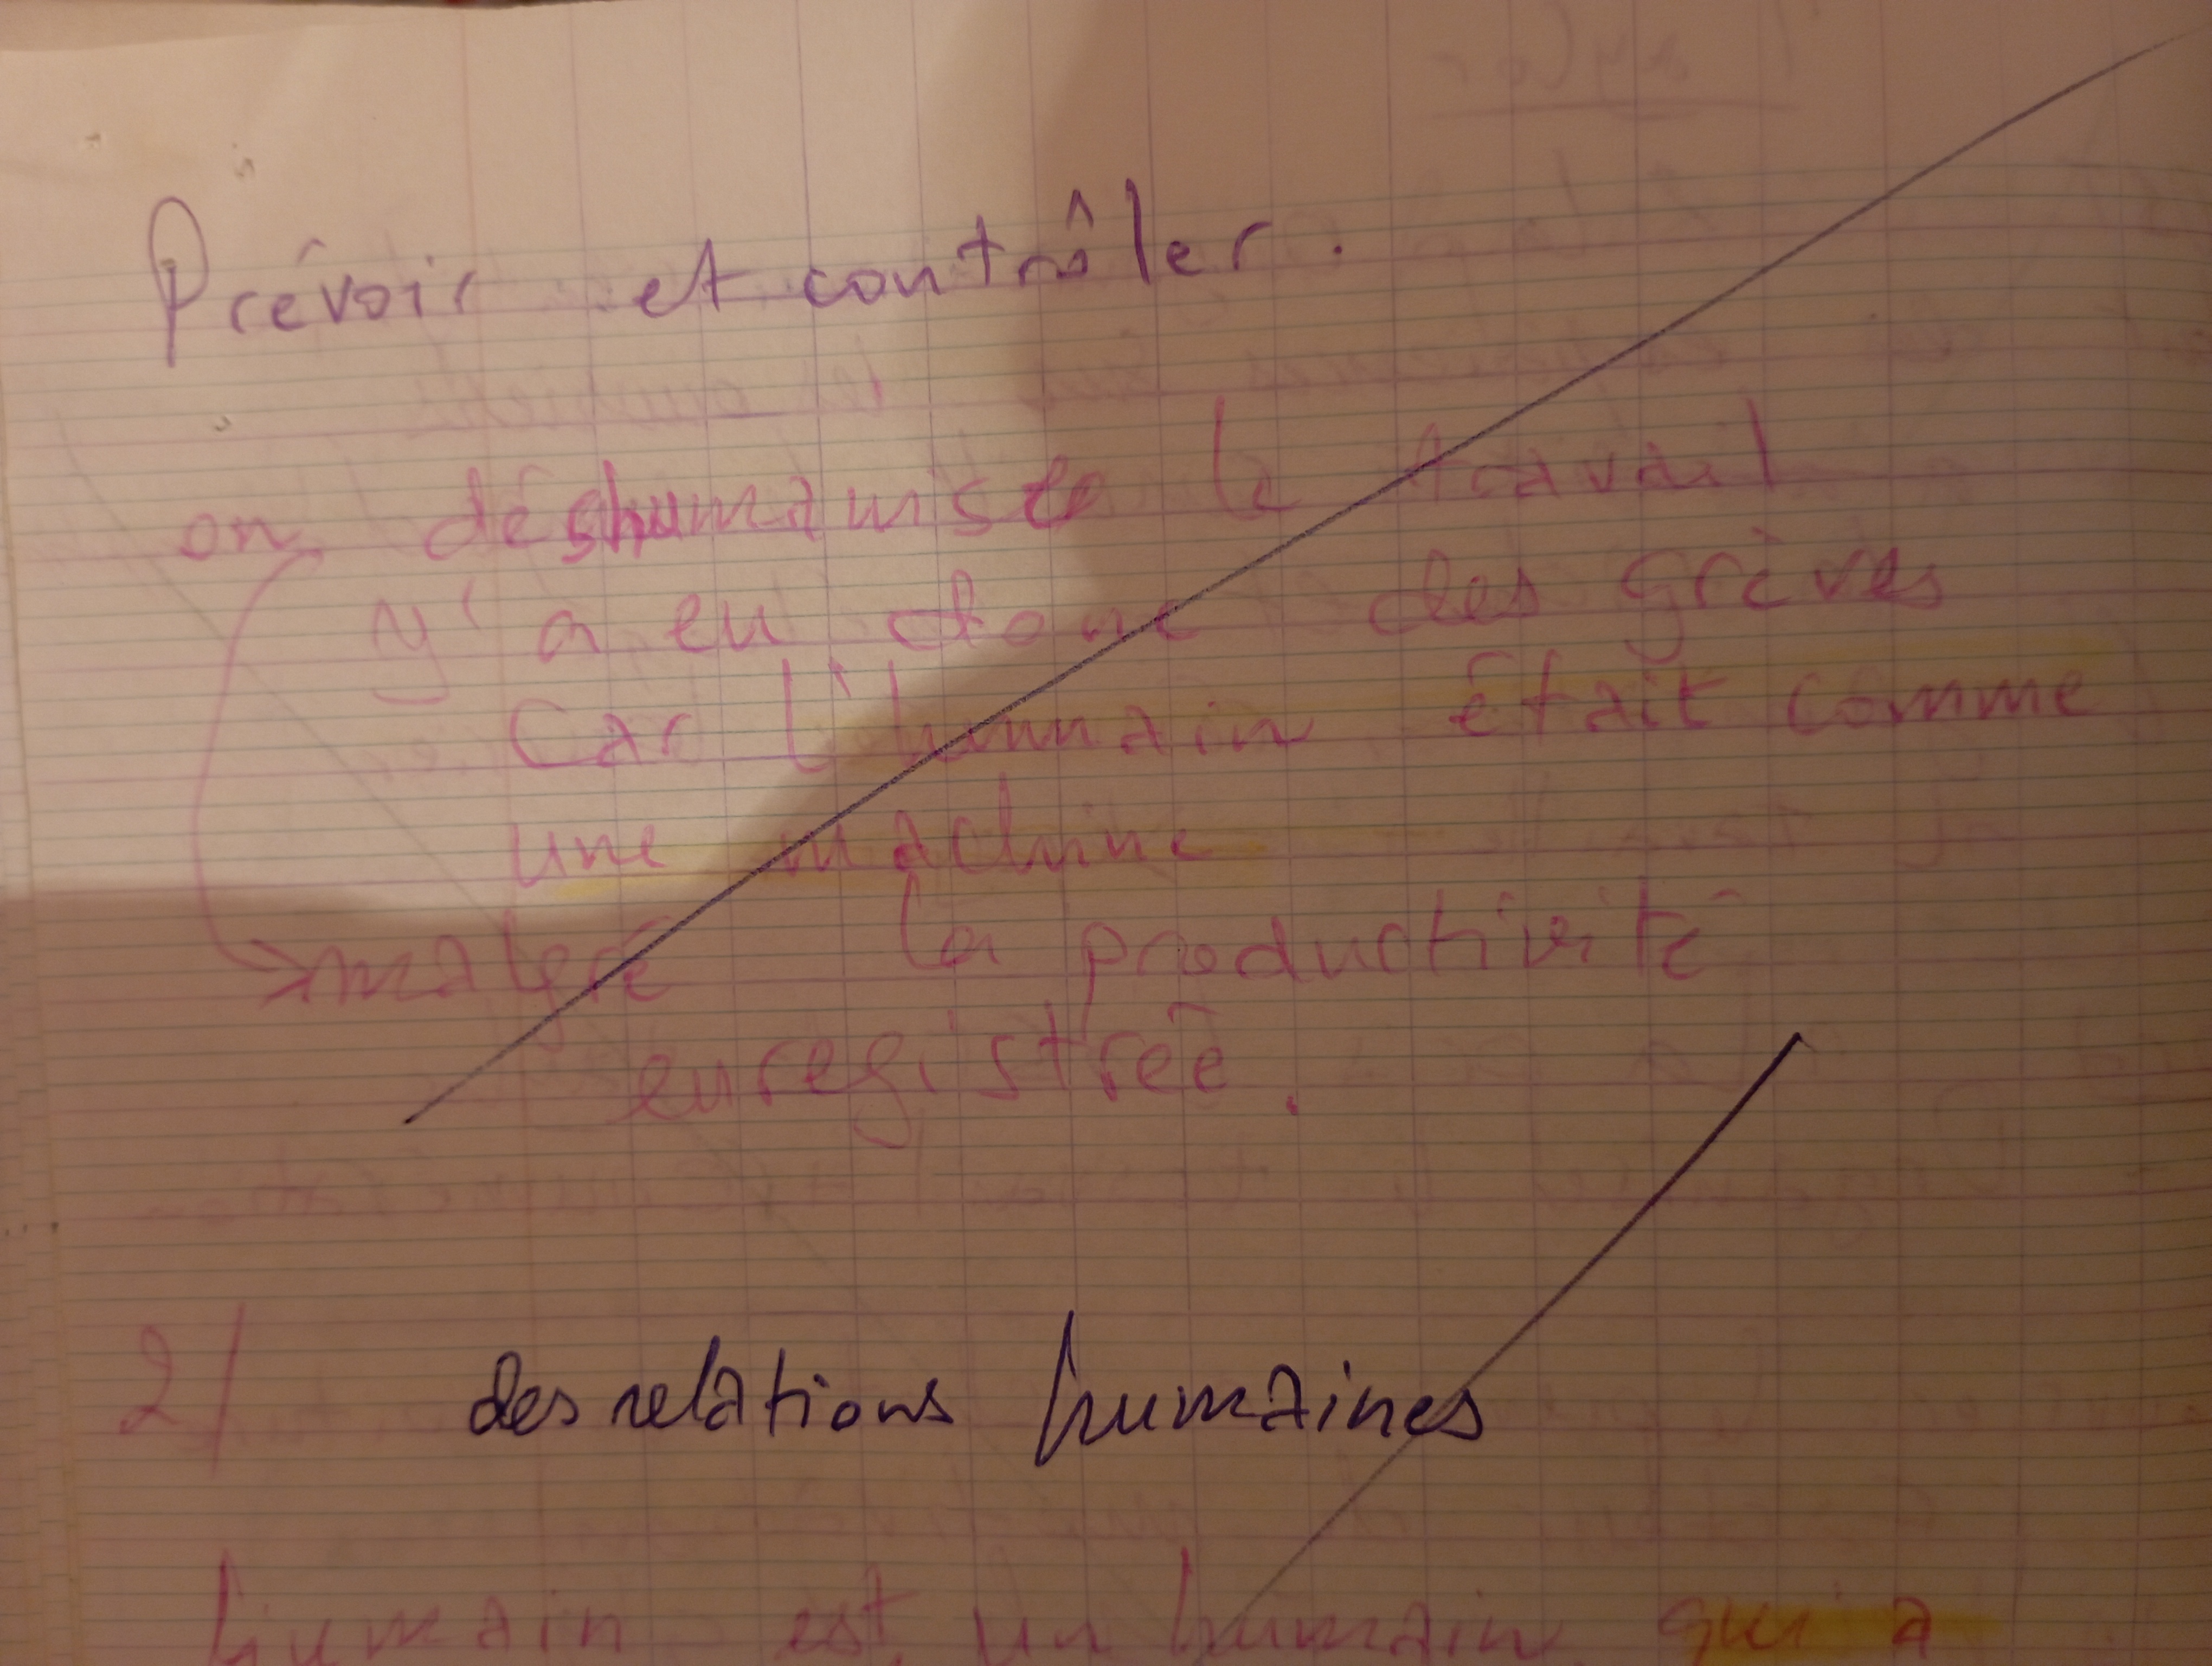 Prévoir et contrôler.
on déshumanise le travail
N'a eu donc des grèves
Car L'humain était comme
une machine
malgré la productivité
enregistrée.
2/ des relations humaines
humain est un humain qui a